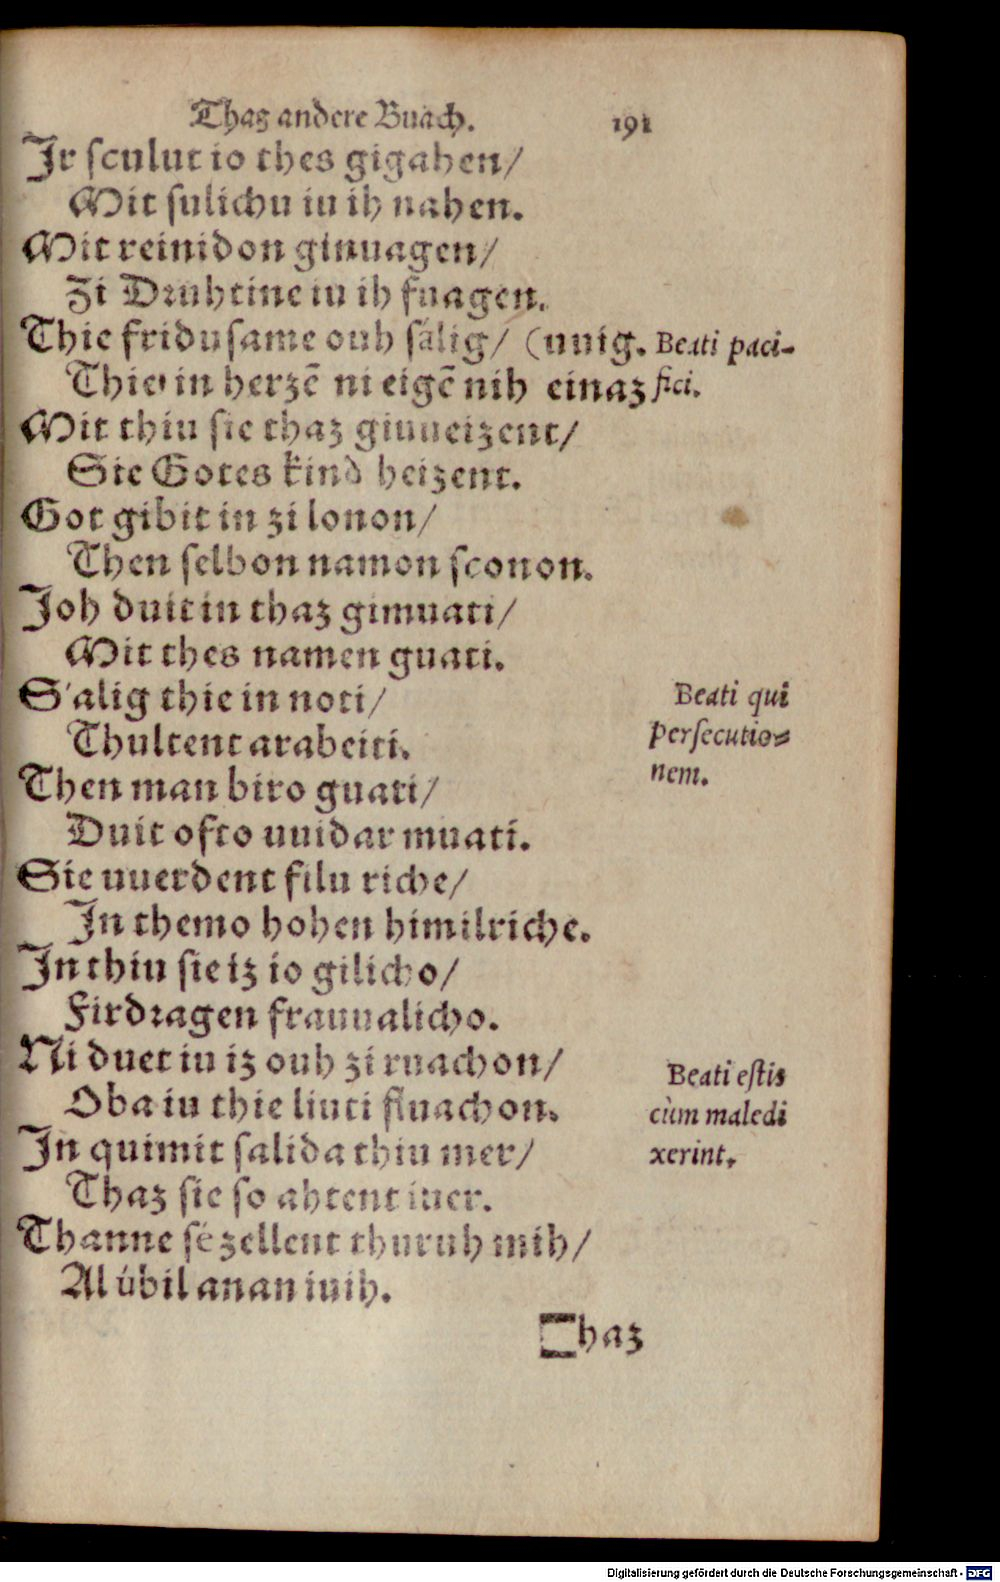 Thaz andere Buach. 191
Ir sculut io thes gigahen/
Mit sulichu iu ih nahen.
Mit reinidon ginuagen/
Zi Druhtine iu ih fuagen.
Thie fridusame ouh sálig/ (uuig.
Thie in herzē ni eigē nih einaz
Beati paci-
fici.
Mit thiu sie thaz giuueizent/
Sie Gotes kind heizent.
Got gibit in zi lonon/
Then selbon namon sconon.
Joh duit in thaz gimuati/
Mit thes namen guati.
S'alig thie in noti/
Thultent arabeiti.
Beati qui
persecutio-
nem.
Then man biro guati/
Duit ofto uuidar muati.
Sie uuerdent filu riche/
In themo hohen himilriche.
In thiu sie iz io gilicho/
Firdragen frauualicho.
Ni duet iu iz ouh zi ruachon/
Oba iu thie liuti fluachon.
Beati estis
cùm maledi
xerint.
In quimit salida thiu mer/
Thaz sie so ahtent iuer.
Thanne sé zellent thuruh mih/
Al úbil anan iuih.
Thaz
Digitalisierung gefördert durch die Deutsche Forschungsgemeinschaft - DFG